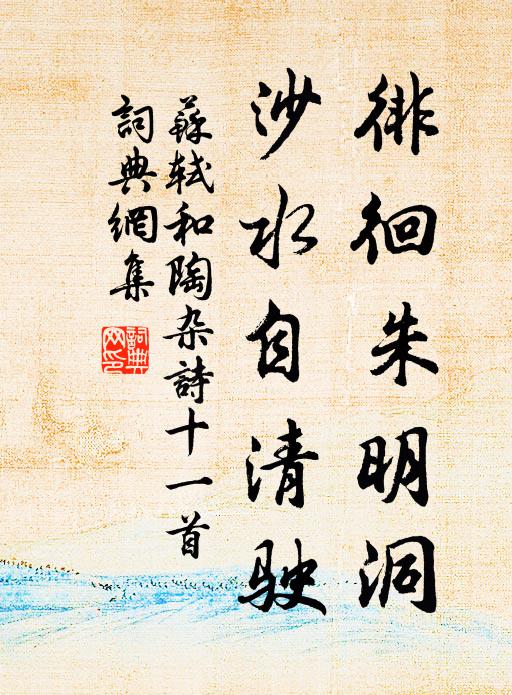 徘徊朱明洞
沙水自清駛
蘇軾和陶杂詩十一首
詞典網集
詞典网印